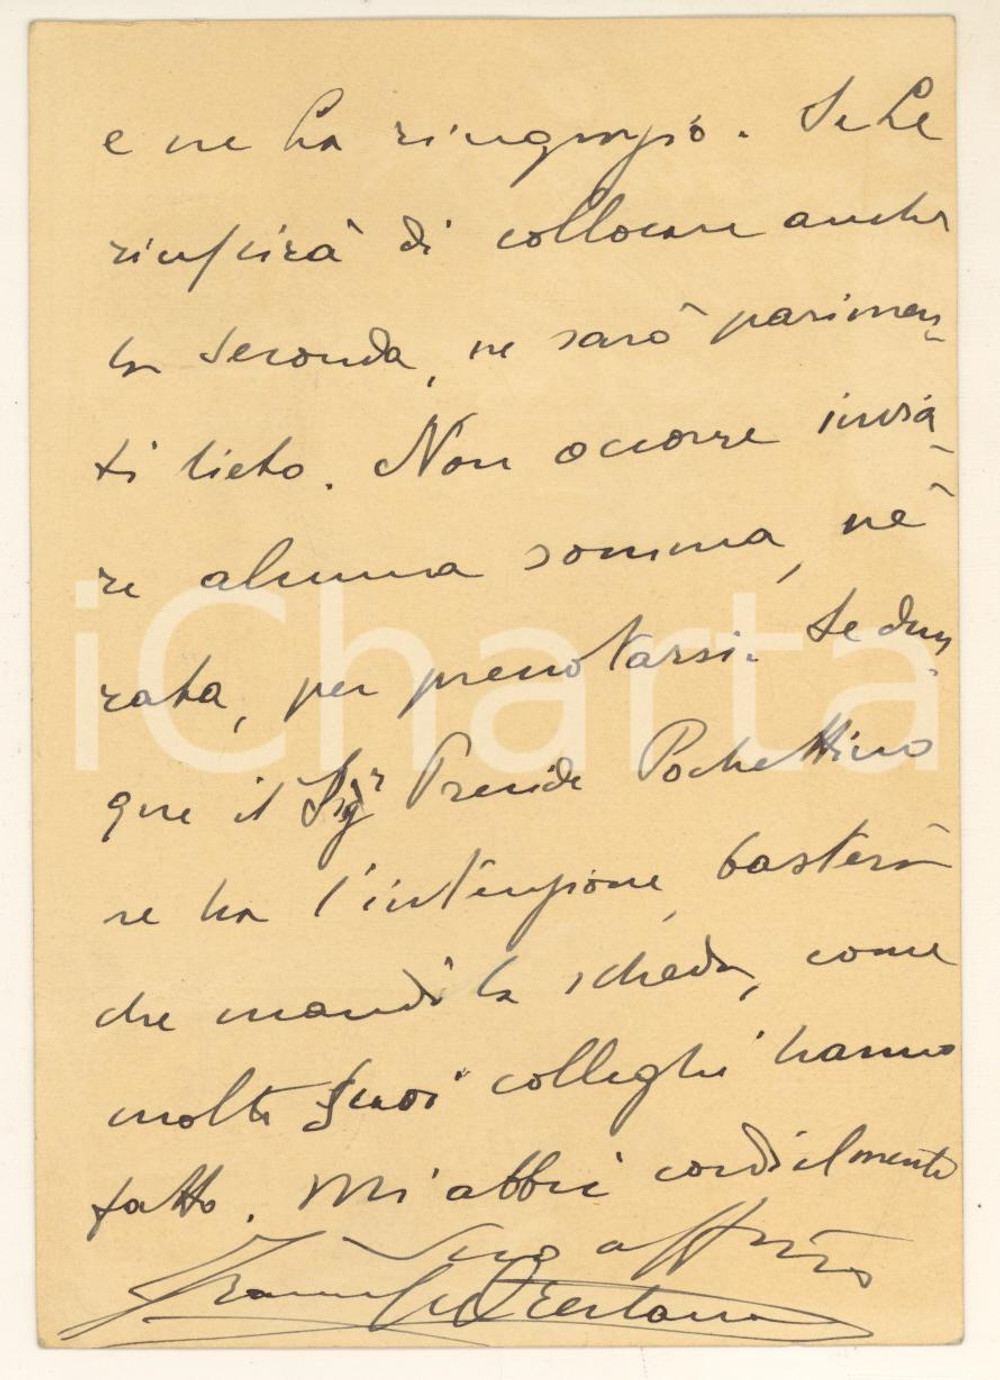 e ne La ringrazio. Se Le
riuscirà di collocare anche
la seconda, ne sarò parimen-
ti lieto. Non occorre invia-
re alcuna somma, nè
rata, per prenotarsi. Se dun-
que il Sigr Preside Pochettino
ne ha l'intenzione, basterà
che mandi la scheda, come
molti Suoi colleghi hanno
fatto. Mi abbia cordialmente
Suo aff.mo
Francesco Orestano
iCharta